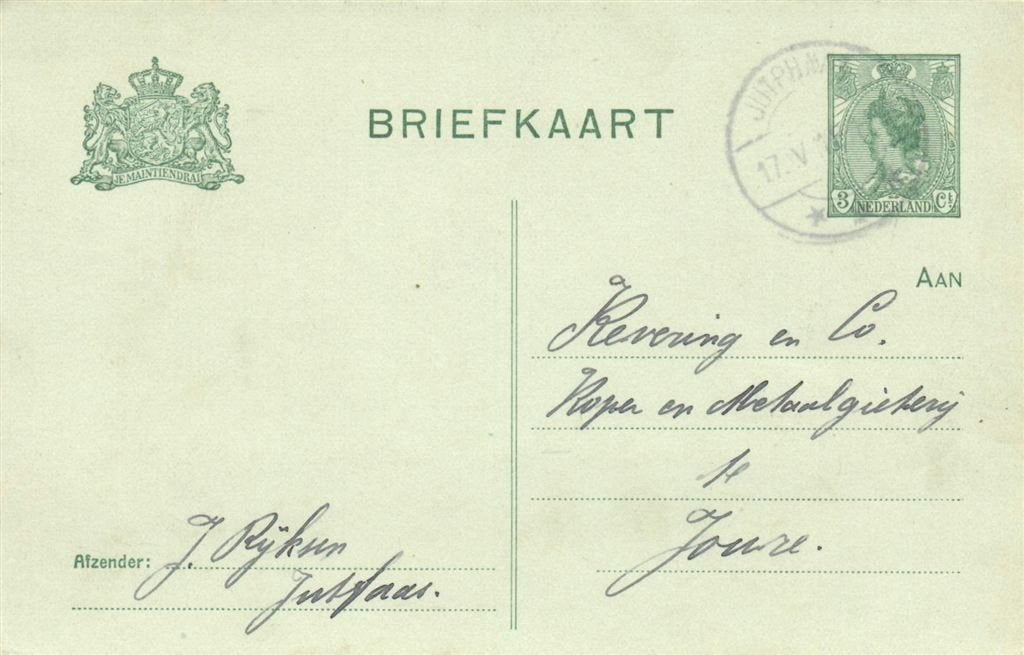 BRIEFKAART
JE MAINTIENDRAI
JUTPH
17. V
3 NEDERLAND Ct
AAN
Kevering en Co.
Koper en Metaalgieterij
te
Joure.
Afzender: J. Rijksen
Jutfaas.